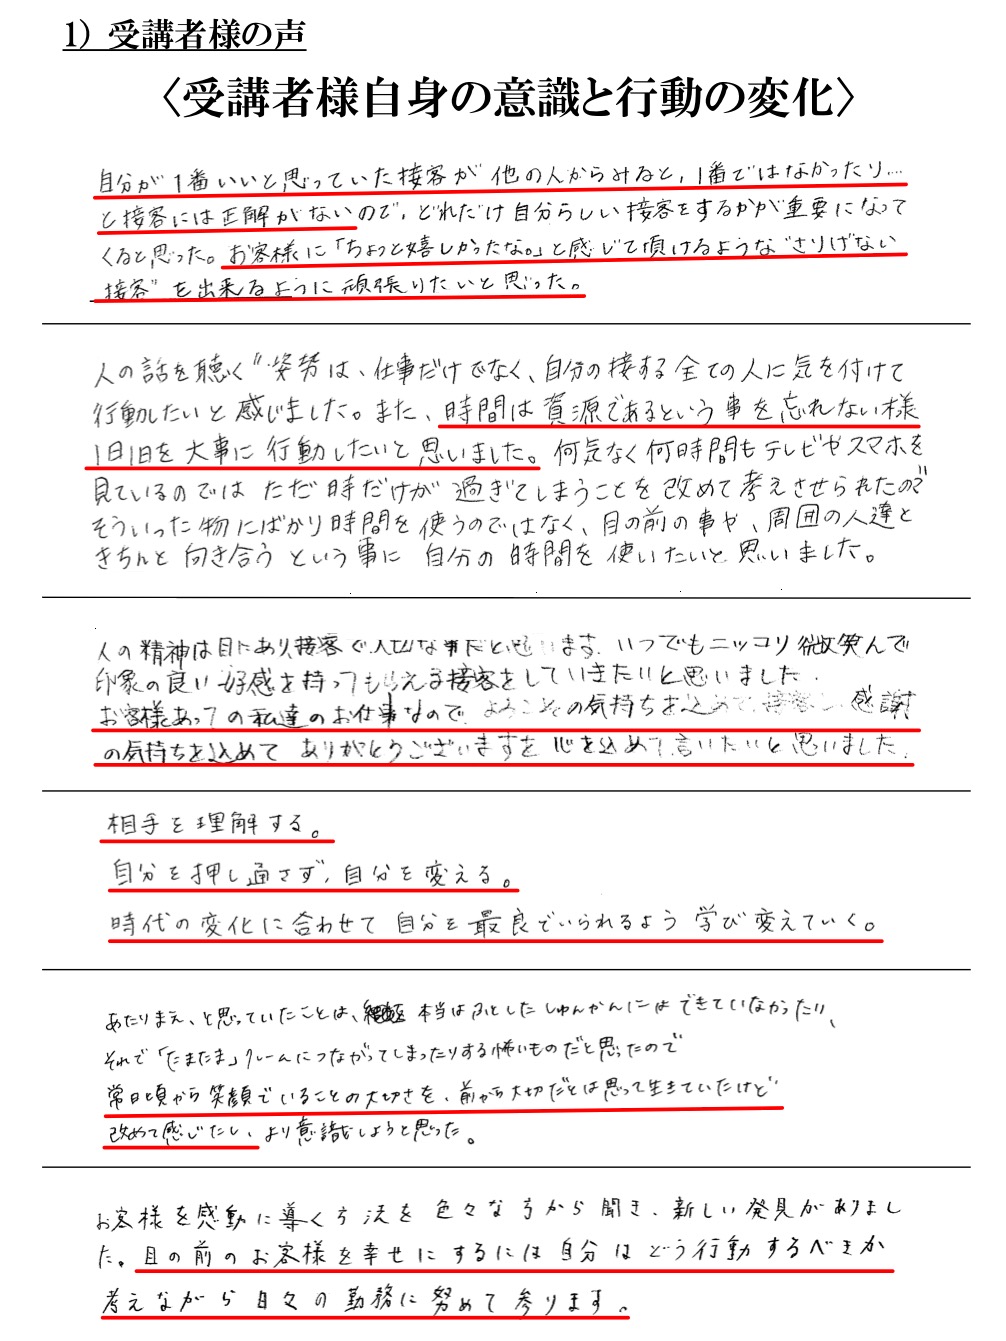 1）受講者様の声
〈受講者様自身の意識と行動の変化〉
自分が1番いいと思っていた接客が他の人からみると,1番ではなかったり…
と接客には正解がないので,どれだけ自分らしい接客をするかが重要になって
くると思った。お客様に「ちょっと嬉しかったな。」と感じて頂けるような“さりげない
接客”を出来るように頑張りたいと思った。
人の話を聴く〃姿勢は、仕事だけでなく、自分の接する全ての人に気を付けて
行動したいと感じました。また、時間は資源であるという事を忘れない様
1日1日を大事に行動したいと思いました。何気なく何時間もテレビやスマホを
見ているのではただ時だけが過ぎてしまうことを改めて考えさせられたので
そういった物にばかり時間を使うのではなく、目の前の事や、周囲の人達と
きちんと向き合うという事に自分の時間を使いたいと思いました。
人の精神は目にあり、接客で大切な事だと思います.いつでもニッコリ微笑んで
印象の良い好感を持ってもらえる接客をしていきたいと思いました.
お客様あっての私達のお仕事なので、ようこその気持ちを込めて接客し感謝
の気持ちを込めてありがとうございますを心を込めて言いたいと思いました.
相手を理解する。
自分を押し通さず,自分を変える。
時代の変化に合わせて自分を最良でいられるよう学び変えていく。
あたりまえ、と思っていたことは、本当はふとしたしゅんかんにはできていなかったり、
それで「たまたま」クレームにつながってしまったりする怖いものだと思ったので
常日頃から笑顔でいることの大切さを、前から大切だとは思って生きていたけど
改めて感じたし、より意識しようと思った。
お客様を感動に導く方法を色々な方から聞き、新しい発見がありまし
た。目の前のお客様を幸せにするには自分はどう行動するべきか
考えながら日々の勤務に努めて参ります。